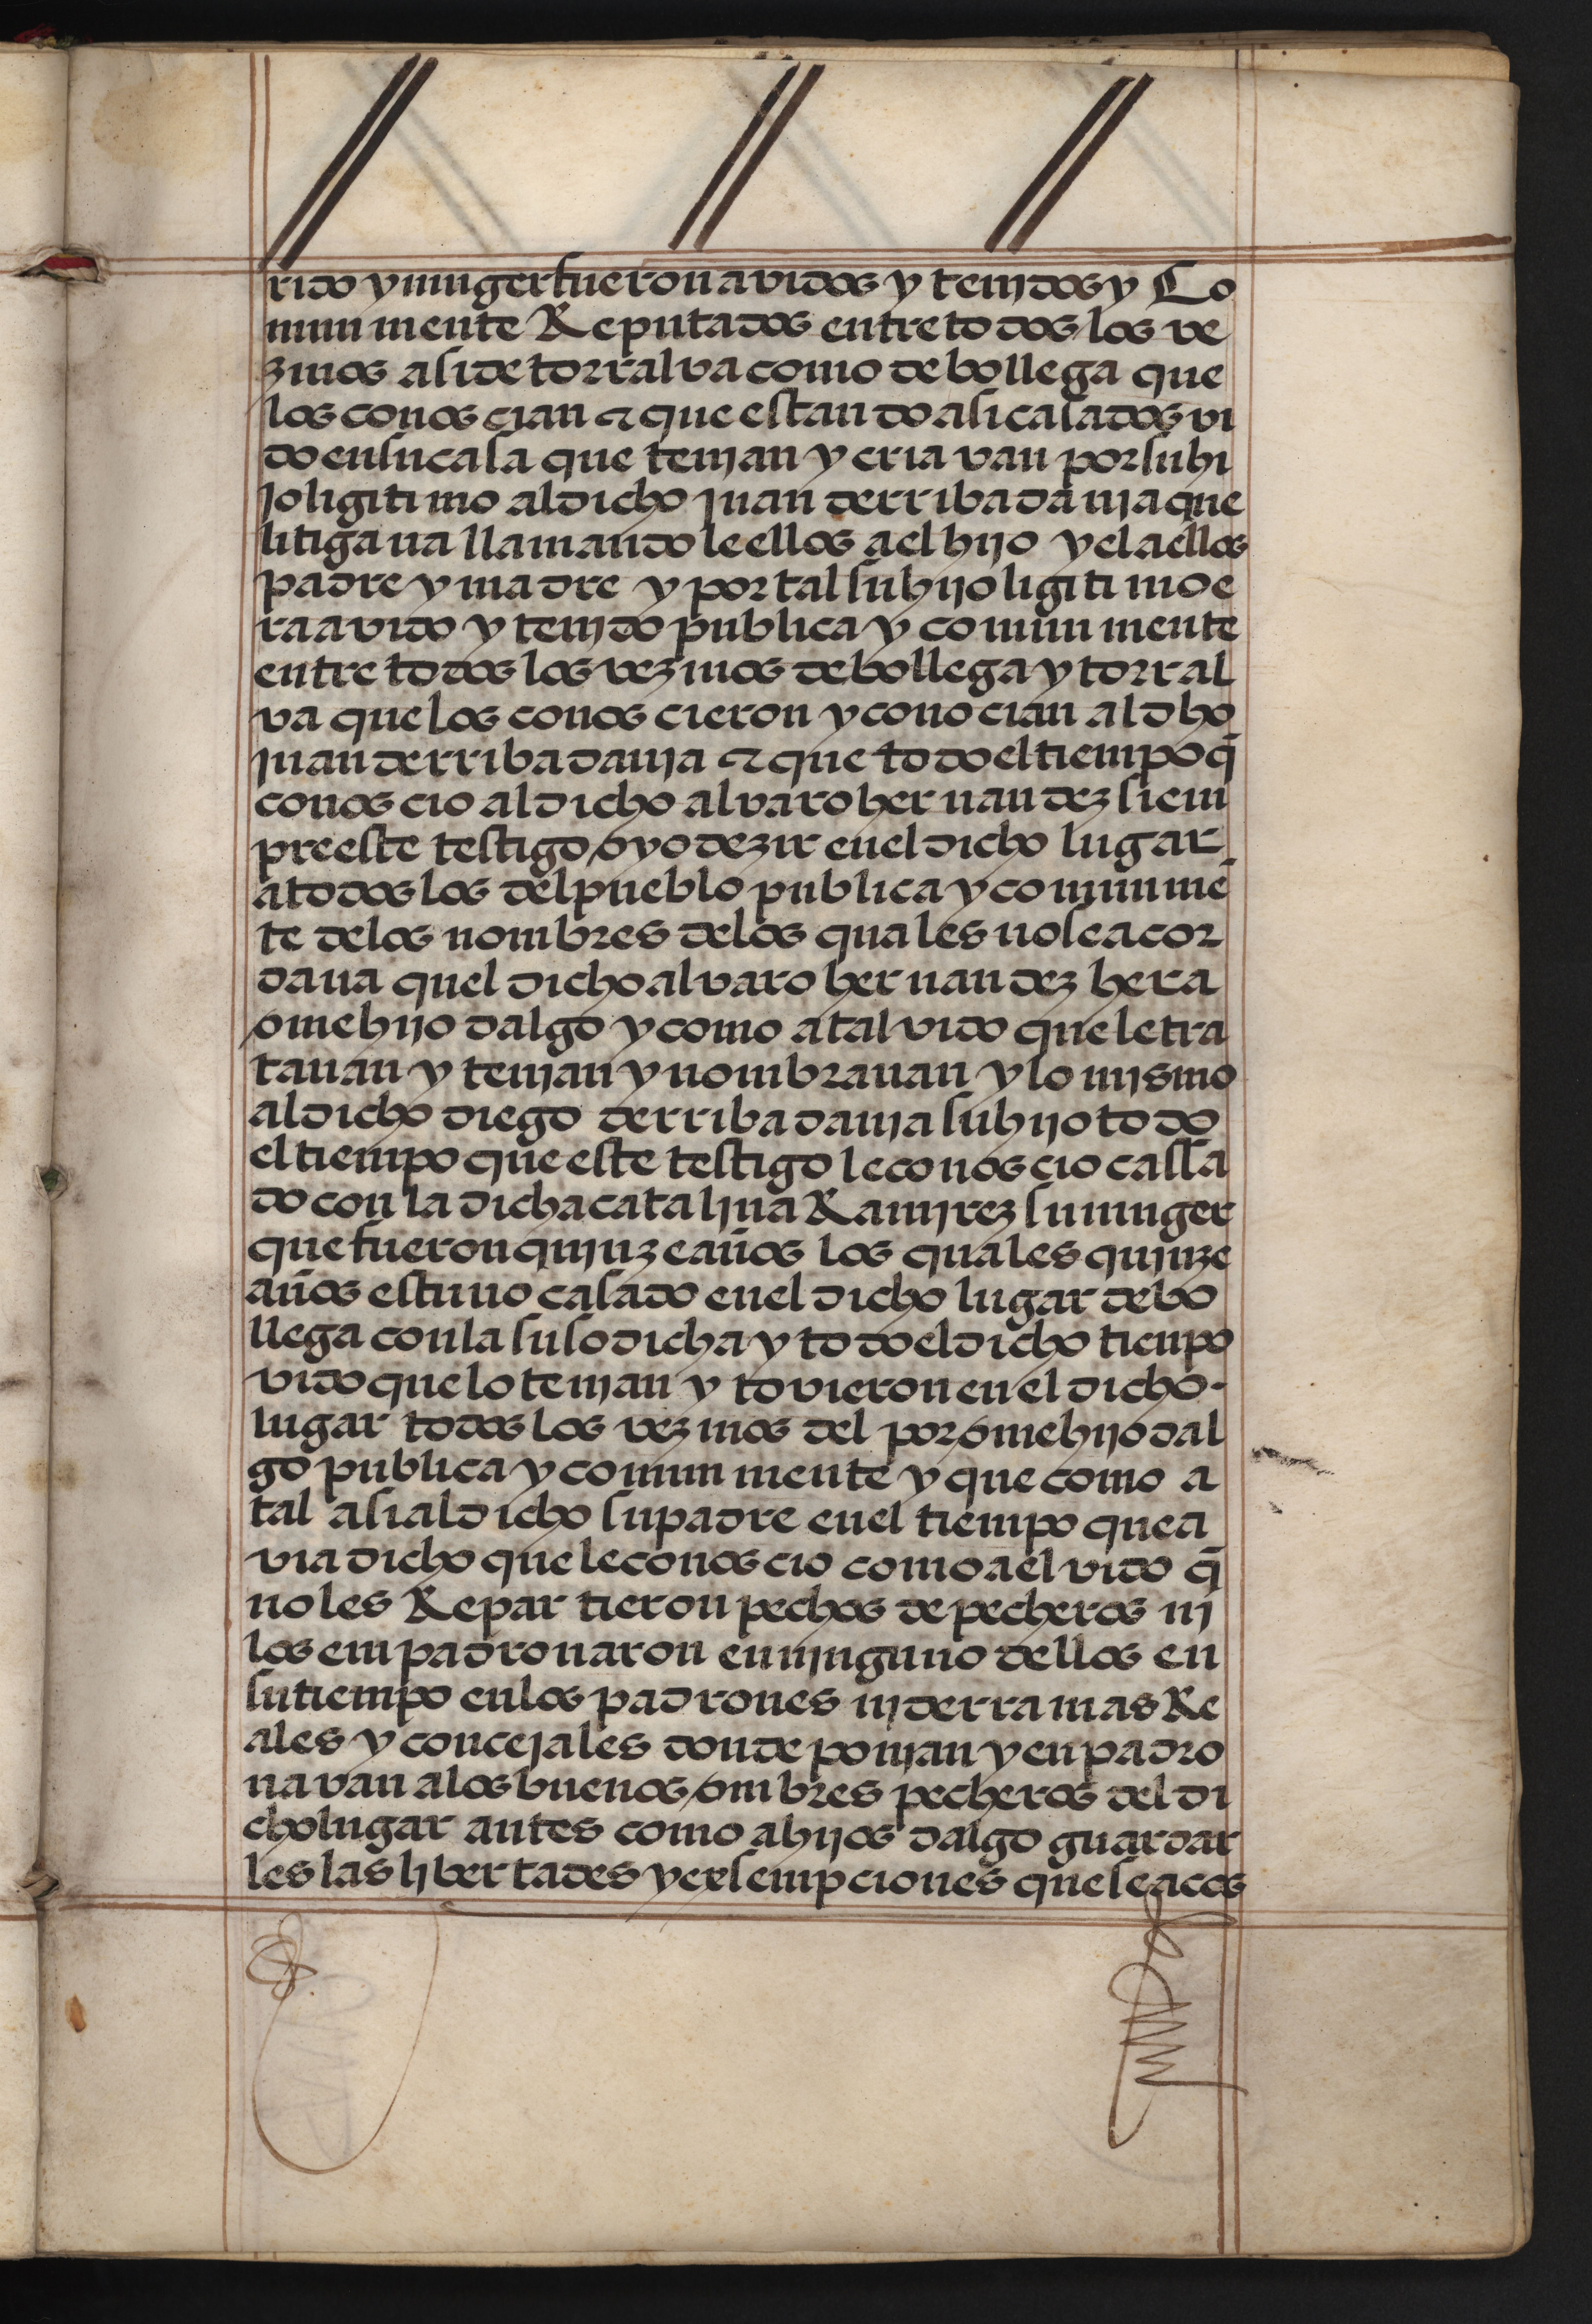 rido y muger fueron avidos y tenjdos y Co
mun mente Reputados entre todos los ve
zinos asi de torralva como de bollega que
los conoscian & que estando asi casados vi
do en su casa que tenjan y criavan por su hi
jo ligitimo al dicho juan de rribadavia que
litigava llamandole ellos a el hijo y el a ellos
padre y madre y por tal su hijo ligitimo e
ra avido y tenjdo publica y comun mente
entre todos los vezinos de bollega y torral
va que los conoscieron y conocian al dho
juan de rribadavia & que todo el tiempo q̄
conoscio al dicho alvaro hernandez siem
pre este testigo oyo dezir en el dicho lugar
a todos los del pueblo publica y comunmē
te de los nombres de los quales no se acor
dava quel dicho alvaro hernandez hera
ome hijo dalgo y como a tal vido que le tra
tavan y tenjan y nombravan y lo mjsmo
al dicho diego de rribadavia su hijo todo
el tiempo que este testigo le conoscio cassa
do con la dicha catalina Ramjrez su muger
que fueron quinze años los quales quinze
años estuvo casado en el dicho lugar de bo
llega con la susodicha y todo el dicho tienpo
vido que lo tenjan y tovieron en el dicho
lugar todos los vezinos del por ome hijo dal
go publica y comun mente y que como a
tal asi al dicho su padre en el tiempo que a
via dicho que le conoscio como a el vido q̄
no les Repartieron pechos de pecheros nj
los enpadronaron en njnguno dellos en
su tiempo en los padrones nj derramas Re
ales y concejales donde ponjan y enpadro
navan a los buenos ombres pecheros del di
cho lugar antes como a hijos dalgo guardar
les las libertades y exsempciones que se acos